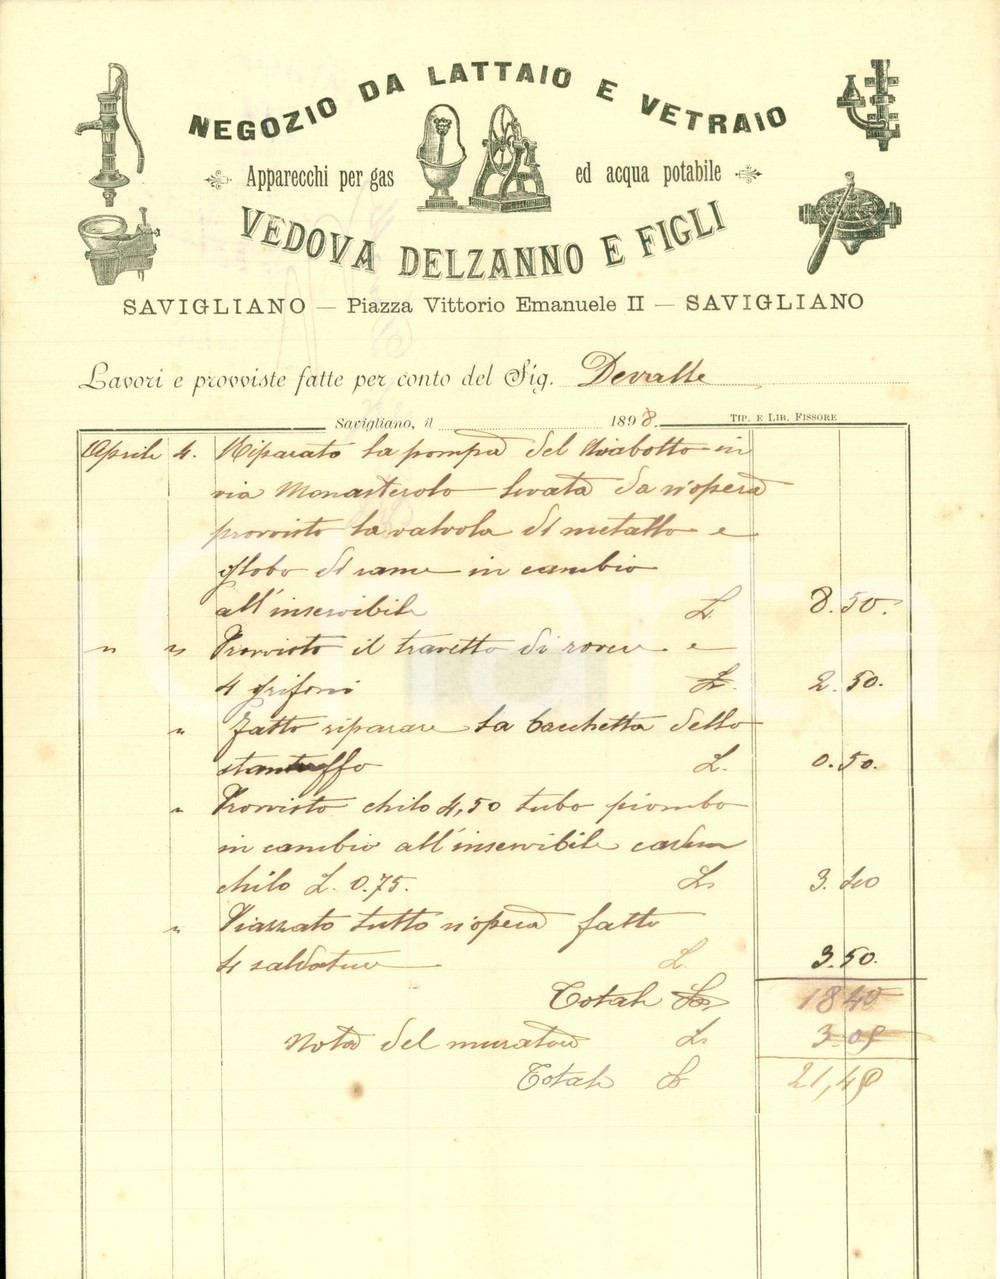 NEGOZIO DA LATTAIO E VETRAIO
Apparecchi per gas ed acqua potabile
VEDOVA DELZANNO E FIGLI
SAVIGLIANO — Piazza Vittorio Emanuele II — SAVIGLIANO
Lavori e provviste fatte per conto del Sig. Devalle
Savigliano, il 1898. TIP. E LIB. FISSORE
Aprile 4. Riparato la pompa del in
via Monasterolo levata da n'opera
provvisto la valvola di metallo e
globo di rame in cambio
all'inservibile L. 8.50.
" " Provvisto il travetto di rovere e
4 grifoni L. 2.50.
" Fatto riparare la bacchetta dello
stantuffo L. 0.50.
" Provvisto chilo 4,50 tubo piombo
in cambio all'inservibile cadun
chilo L. 0.75. L. 3.40
" Piazzato tutto n'opera fatto
4 saldature L. 3.50.
Totale L. 18 40
Nota del muratore L. 3.05
Totale L. 21,45
iCharta